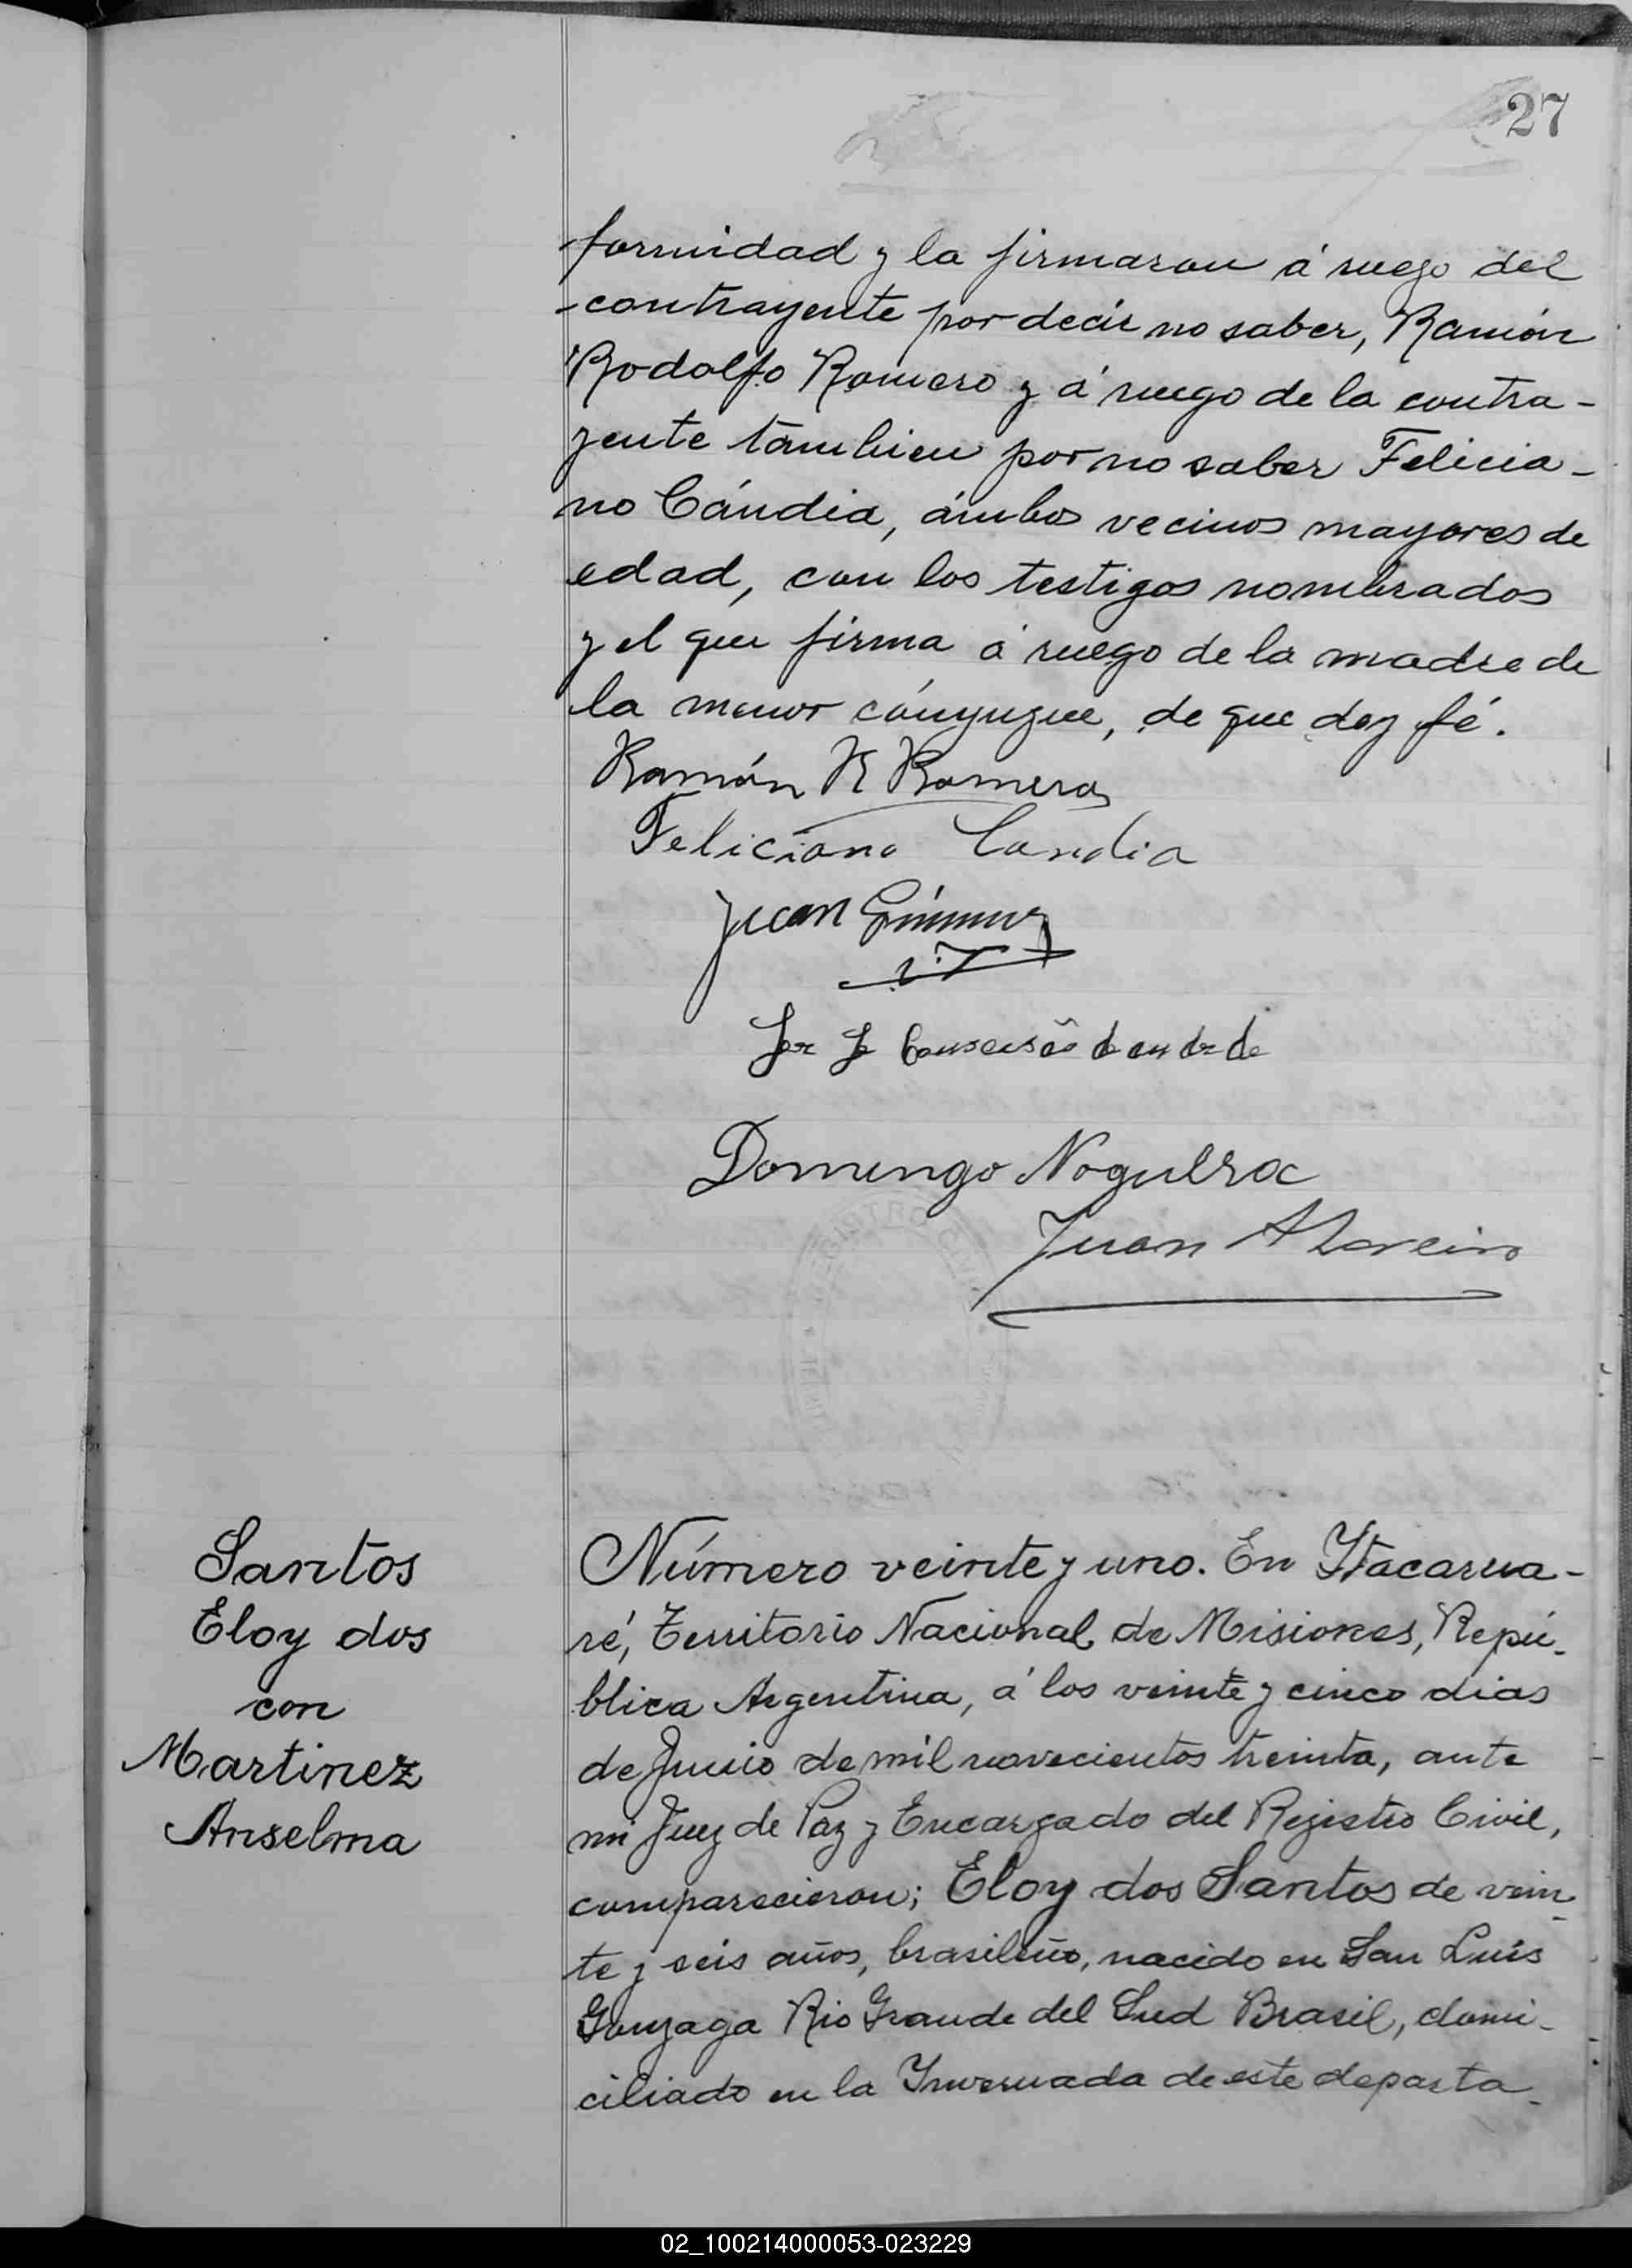 27
formidad y la firmaron á ruego del
contrayente por decir no saber, Ramón
Rodolfo Romero y á ruego de la contra-
yente tambien por no saber Felicia-
no Cándia, ámbos vecinos mayores de
edad, con los testigos nombrados
y el que firma á ruego de la madre de
la menor cónyugue, de que doy fé.
Ramón R Romero
Feliciano Candia
Juan
Domingo Noguera
Juan
Santos
Eloy dos
con
Martinez
Anselma
Número veinte y uno. En Ytacarua-
ré, Territorio Nacional de Misiones, Repú-
blica Argentina, á los veinte y cinco dias
de Junio de mil novecientos treinta, ante
mi Juez de Paz y Encargado del Registro Civil,
comparecieron; Eloy dos Santos de vein-
te y seis años, brasileño, nacido en San Luis
Gonzaga Rio Grande del Sud Brasil, domi-
ciliado en la Invernada de este departa-
02_100214000053-023229